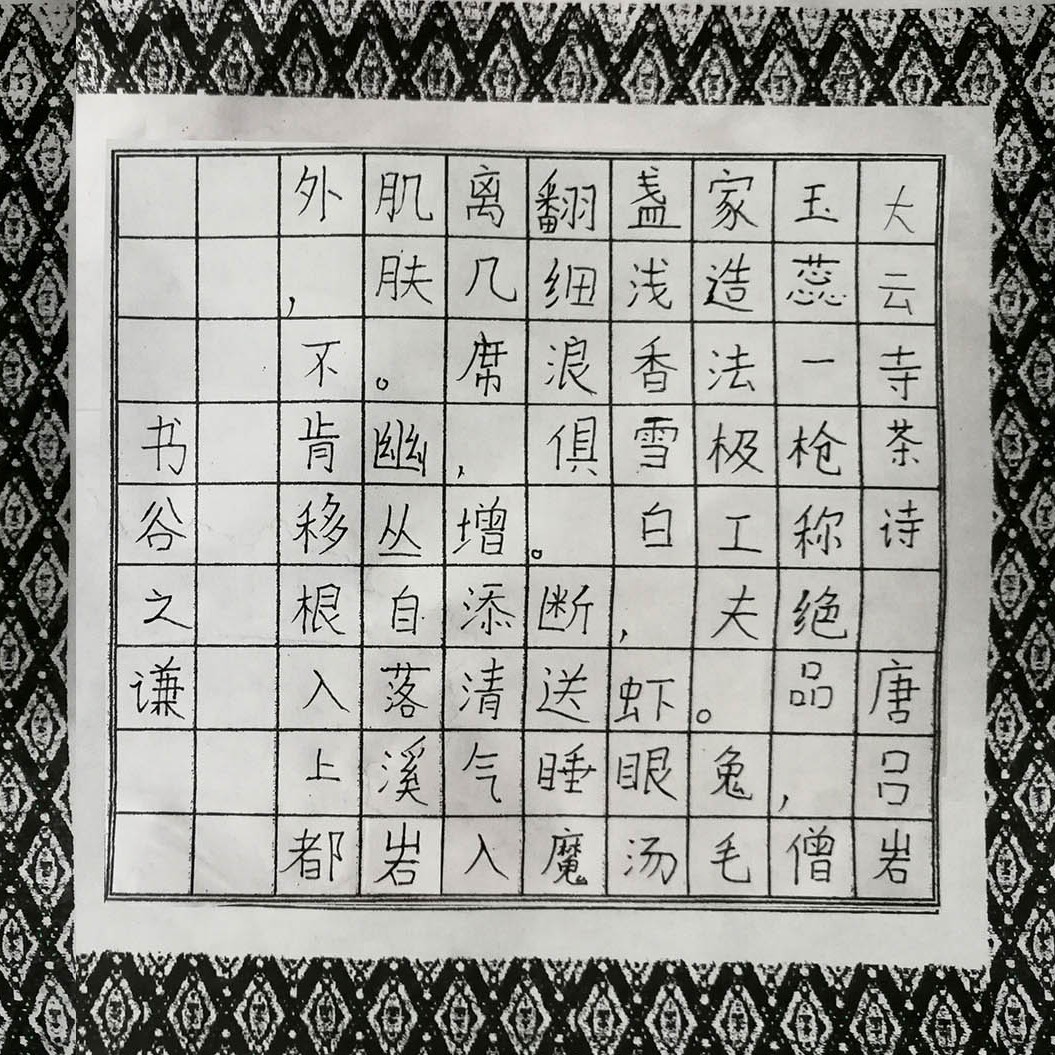 大云寺茶诗 唐吕岩
玉蕊一枪称绝品,僧
家造法极工夫。兔毛
盏浅香雪白,虾眼汤
翻细浪俱。断送睡魔
离几席,增添清气入
肌肤。幽丛自落溪岩
外,不肯移根入上都
书谷之谦